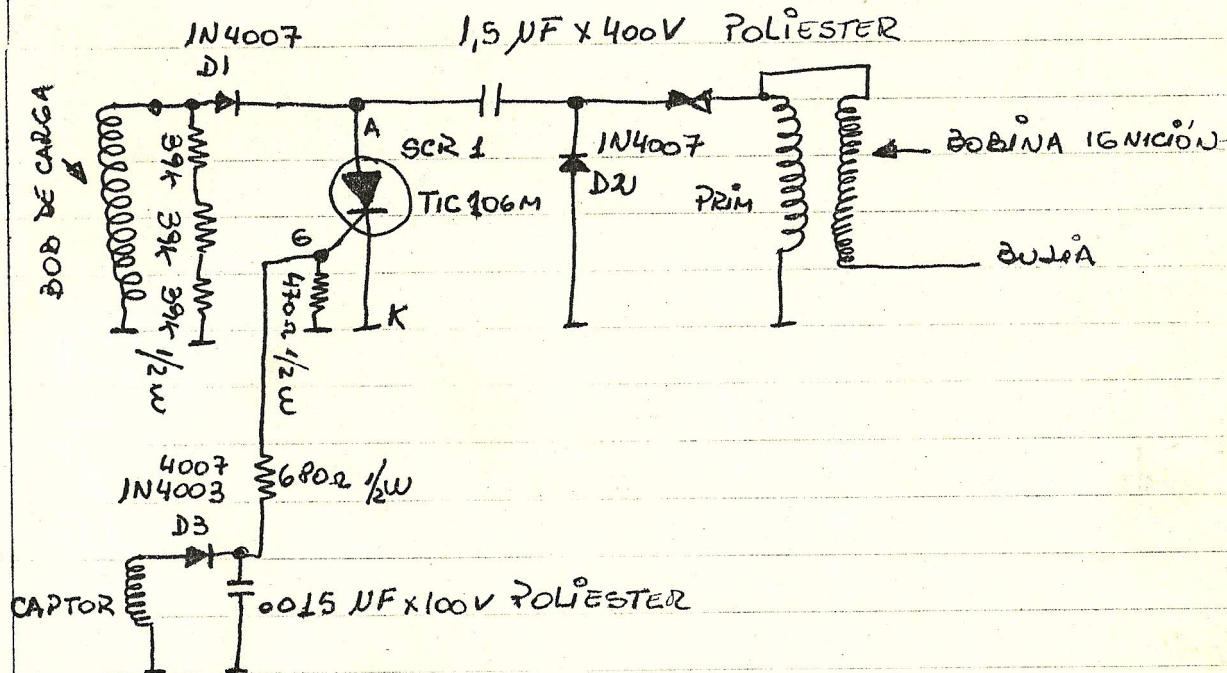 1N4007
D1
1,5 µF x 400V POLIESTER
BOB DE CARGA
39K 39K 39K 1/2W
A
SCR 1
TIC 106M
G
K
470Ω 1/2W
1N4007
D2
PRIM
BOBINA IGNICIÓN
BUJIA
4007
1N4003
D3
680Ω 1/2W
CAPTOR
.0015 µF x 100V POLIESTER